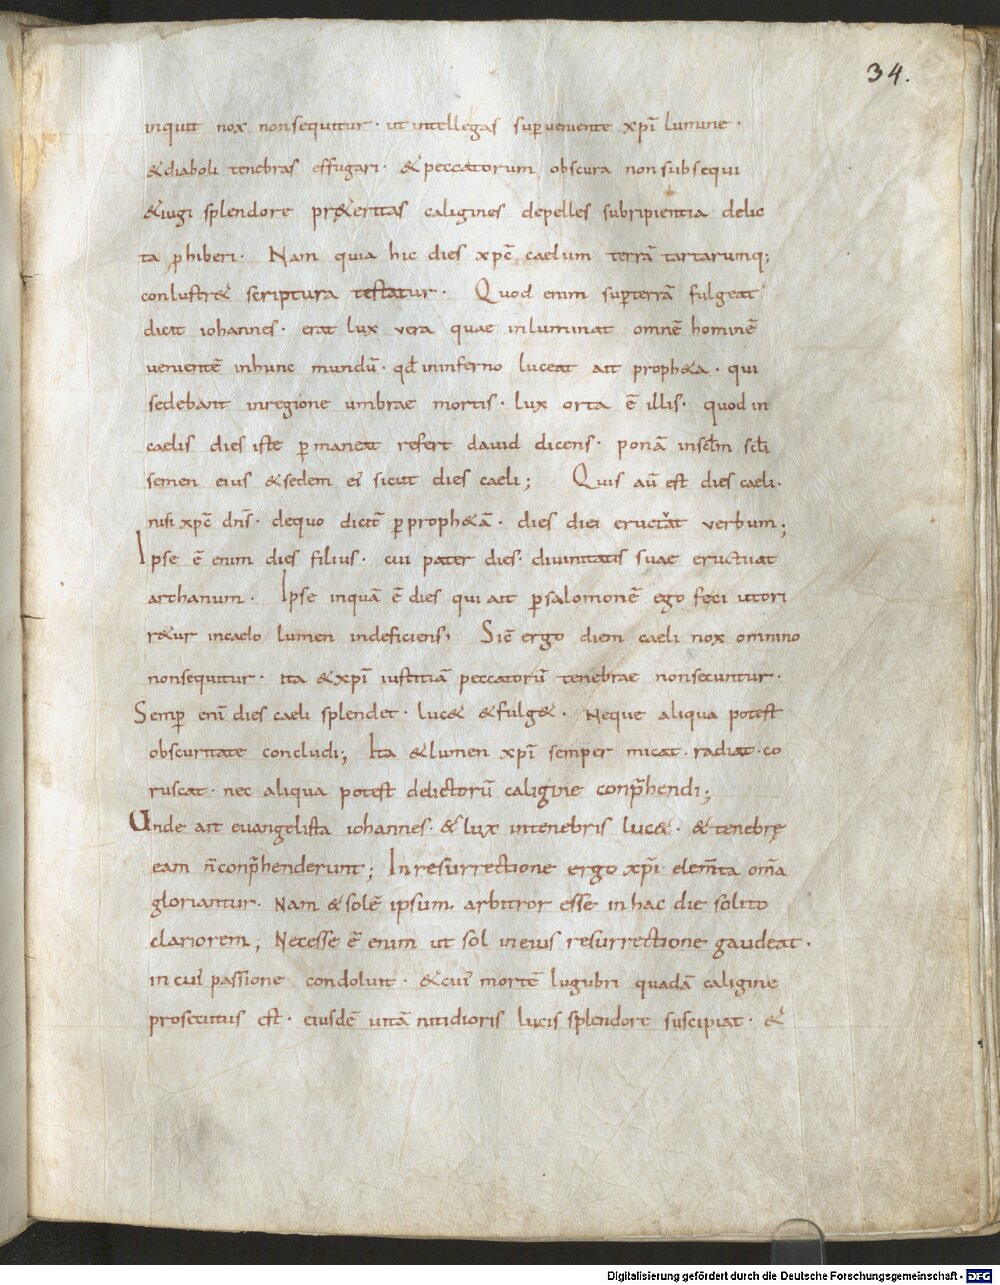 34.
inquit nox non sequitur · ut intellegas sup̄veniente xp̄i lumine ·
& diaboli tenebras effugari · & peccatorum obscura non subsequi
& iugi splendore pr&eritas caligines depelles subripientia delic
ta p̱hiberi · Nam quia hic dies xp̄c caelum terrā tartarumq;
conlustr& scriptura testatur · Quod enim sup̄ terrā fulgeat
dicit iohannes · erat lux vera quae inluminat omnē hominē
venientē in hunc mundū · qđ in inferno luceat ait proph&a · qui
sedebant in regione umbrae mortis · lux orta ē illis · quod in
caelis dies iste p̱maneat refert david dicens · ponā in sc̄lm sc̄li
semen eius & sedem ei sicut dies caeli; Quis aū est dies caeli ·
nisi xp̄c dn̄s · de quo dicit̄ p̱ proph&ā · dies diei eructat verbum;
Ipse ē enim dies filius · cui pater dies · divinitatis suae eructuat
archanum · Ipse inquā ē dies qui ait p̱ salomonē ego feci ut ori
r&ur in caelo lumen indeficiens · Sic̄ ergo diem caeli nox omnino
non sequitur · ita & xp̄i iustitiā peccatorū tenebrae non secuntur ·
Semp̱ enī dies caeli splendet · luc& & fulg& · Neque aliqua potest
obscuritate concludi; Ita & lumen xp̄i semper micat · radiat · co
ruscat · nec aliqua potest delictorū caligine conp̄hendi;
Unde ait evangelista iohannes · & lux in tenebris luc& · & tenebrę
eam n̄ conp̄henderunt; In resurrectione ergo xp̄i · elem̄ta om̄a
gloriantur · Nam & solē ipsum · arbitror esse in hac die solito
clariorem; Necesse ē enim ut sol in eius resurrectione gaudeat ·
in cui passione condoluit · & cui mortē lugubri quadā caligine
prosecutus est · eiusdē vitā nitidioris lucis splendore suscipiat · &
Digitalisierung gefördert durch die Deutsche Forschungsgemeinschaft - DFG